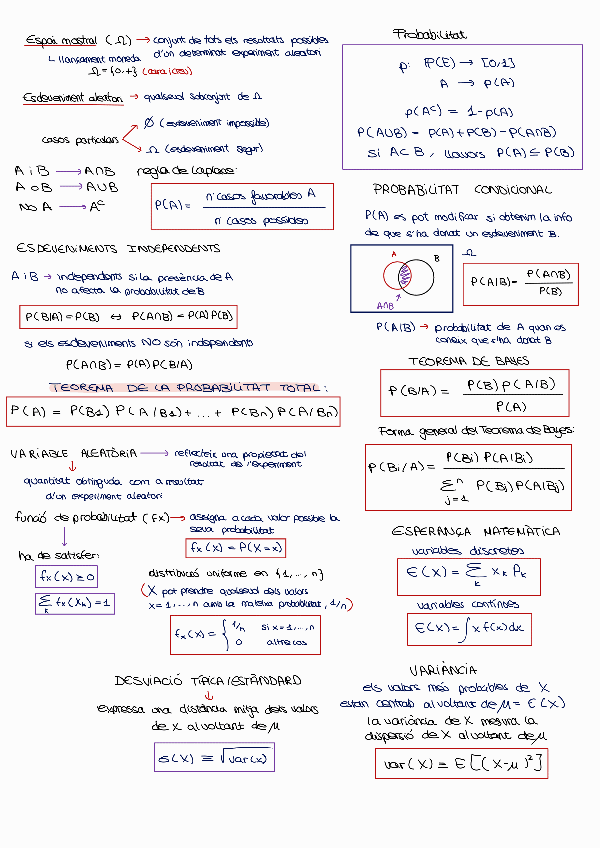 Espai mostral (Ω) → conjunt de tots els resultats possibles
d'un determinat experiment aleatori
↳ llançament moneda
Ω = {0,+} (cara i creu)
Esdeveniment aleatori → qualsevol subconjunt de Ω
casos particulars
∅ (esdeveniment impossible)
Ω (esdeveniment segur)
A i B → A∩B
A o B → A∪B
No A → Aᶜ
regla de Laplace:
P(A) = nº casos favorables A / nº casos possibles
ESDEVENIMENTS INDEPENDENTS
A i B → independents si la presència de A
no afecta la probabilitat de B
P(B/A) = P(B) ↔ P(A∩B) = P(A) P(B)
si els esdeveniments NO són independents
P(A∩B) = P(A) P(B/A)
TEOREMA DE LA PROBABILITAT TOTAL:
P(A) = P(B1) P(A/B1) + ... + P(Bn) P(A/Bn)
VARIABLE ALEATÒRIA → reflecteix una propietat del
resultat de l'experiment
quantitat obtinguda com a resultat
d'un experiment aleatori
funció de probabilitat (fx) → assigna a cada valor possible la
seva probabilitat
fx(x) = P(X=x)
ha de satisfer:
fx(x) ≥ 0
∑ₖ fx(xₖ) = 1
distribució uniforme en {1,...,n}
(X pot prendre qualsevol dels valors
x=1,...,n amb la mateixa probabilitat, 1/n)
fx(x) = { 1/n si x=1,...,n
0 altre cas
DESVIACIÓ TÍPICA/ESTÀNDARD
expressa una distància mitja dels valors
de X al voltant de μ
σ(X) ≡ √var(x)
Probabilitat
p: P(E) → [0,1]
A → p(A)
p(Aᶜ) = 1-p(A)
P(A∪B) = P(A)+P(B)-P(A∩B)
si A⊂B, llavors P(A) ≤ P(B)
PROBABILITAT CONDICIONAL
P(A) es pot modificar si obtenim la info
de que s'ha donat un esdeveniment B.
A
B
Ω
A∩B
P(A|B) = P(A∩B) / P(B)
P(A|B) → probabilitat de A quan es
coneix que s'ha donat B
TEOREMA DE BAYES
P(B/A) = P(B) P(A/B) / P(A)
Forma general del Teorema de Bayes:
P(Bi/A) = P(Bi) P(A|Bi) / ∑ⁿj=1 P(Bj) P(A|Bj)
ESPERANÇA MATEMÀTICA
variables discretes
E(X) = ∑ₖ xₖ Pₖ
variables contínues
E(X) = ∫x f(x) dx
VARIÀNCIA
els valors més probables de X
estan centrats al voltant de μ = E(X)
la variància de X mesura la
dispersió de X al voltant de μ
var(X) = E[(X-μ)²]